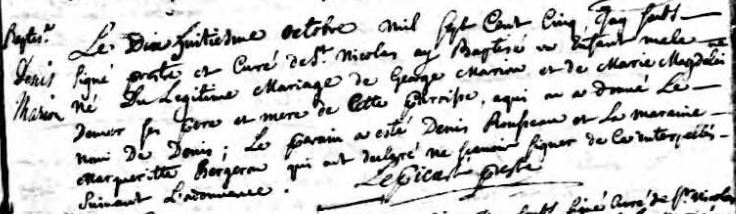 Baptes.
Denis
Marion
Le Dix huitiesme octobre mil sept Cent Cinq, Jay soubs-
signé prestre et Curé de St. Nicolas ay Baptisé un Enfant male ne
né Du Legitime Mariage de George Marion et de Marie Magdelei
Demer ses pere et mere de Cette paroisse, aqui on a donné Le
nom De Denis; Le parain a esté Denis Rousseau et La maraine
Margueritte Bergeron qui ont declaré ne scavoir signer de Ce interpellés
suivant L'ordonnance.
Le Picart prestre
soubs signé Curé de St. Nicolas